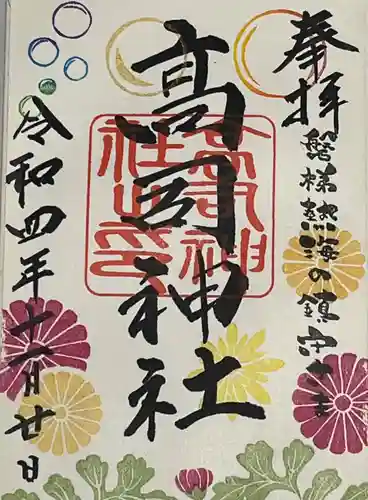 奉拝
磐梯熱海の鎮守さま
高司神社
高司神社之印
令和四年十一月廿日